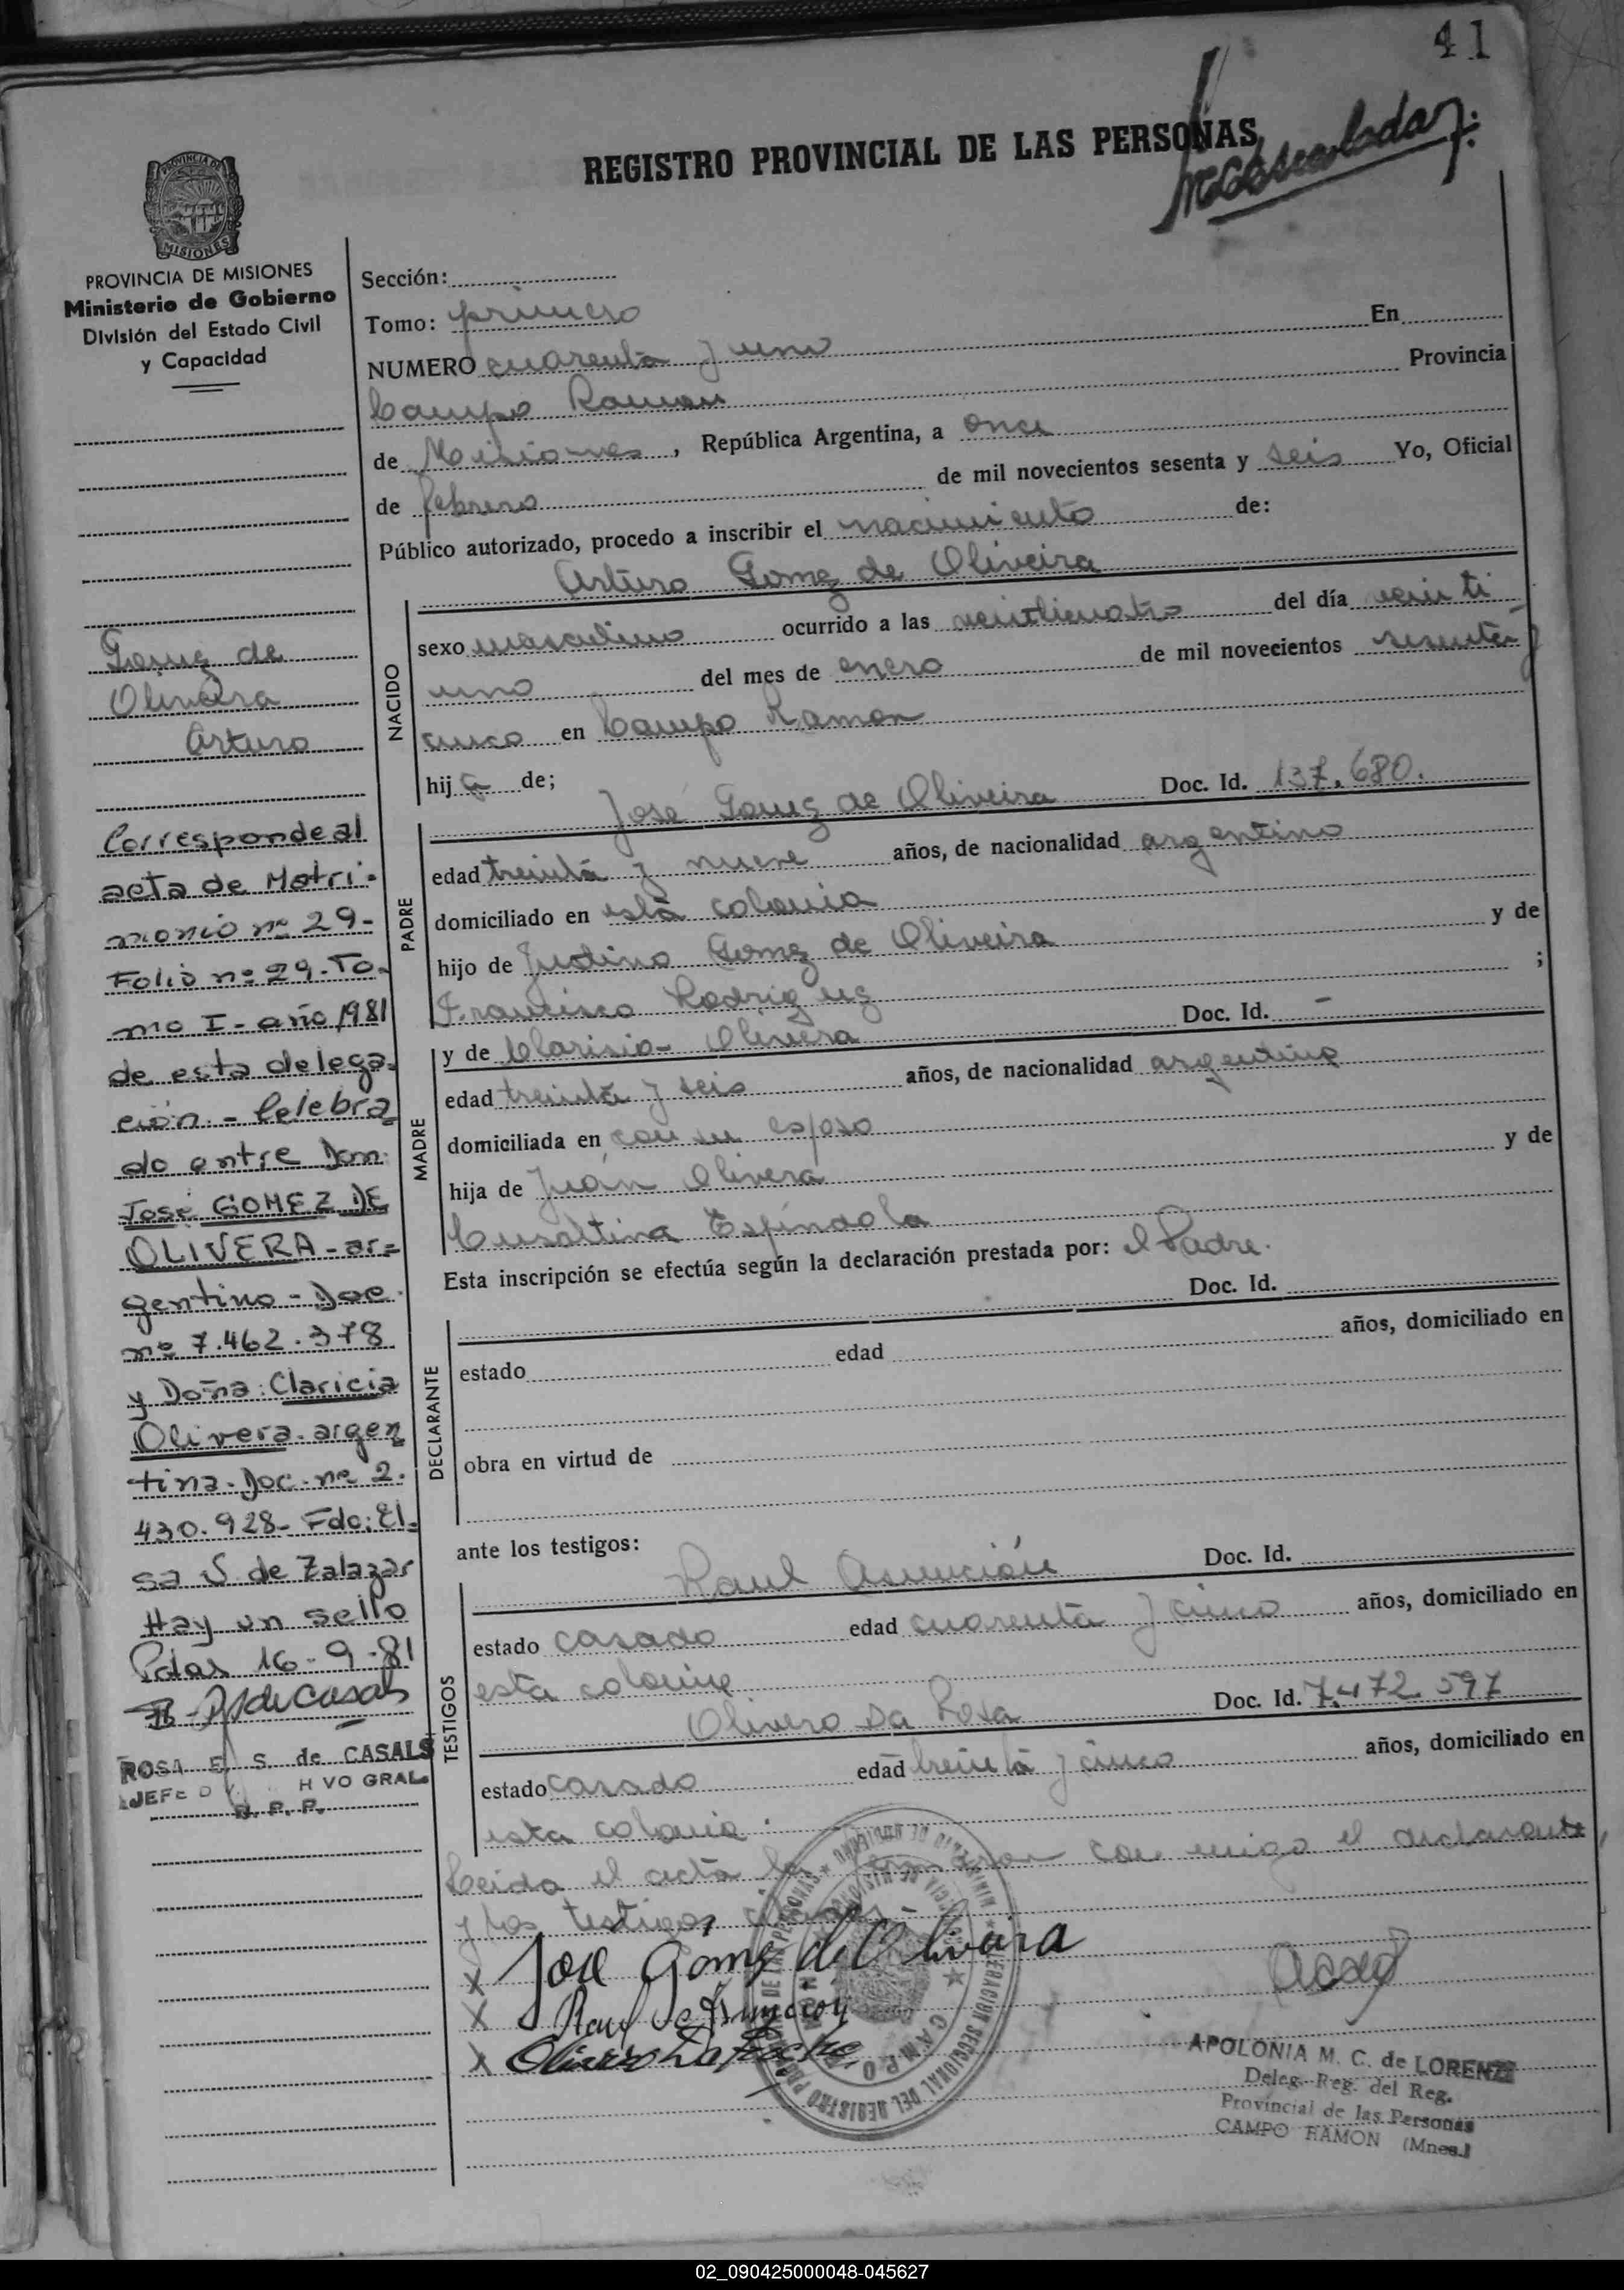 41
REGISTRO PROVINCIAL DE LAS PERSONAS
PROVINCIA DE MISIONES
PROVINCIA DE MISIONES
Ministerio de Gobierno
División del Estado Civil
y Capacidad
Gomez de
Olivera
Arturo
Corresponde al
acta de Matri-
monio nº 29-
Folio nº 29. To-
mo I - año 1981
de esta delega-
ción - Celebra
do entre Don:
José GOMEZ DE
OLIVERA - ar=
gentino - Doc.
nº 7.462.378
y Doña: Claricia
Olivera. argen
tina. Doc. nº 2.
430.928- Fdo: El-
sa S. de Zalazar
Hay un sello
Pdas 16-9-81
ROSA E. S. de CASALS
JEFE VO GRAL.
R. P. P.
Sección:
Tomo: primero
NUMERO cuarenta y uno En
Campo Ramon Provincia
de Misiones, República Argentina, a once
de febrero de mil novecientos sesenta y seis Yo, Oficial
Público autorizado, procedo a inscribir el nacimiento de:
Arturo Gomez de Oliveira
NACIDO
sexo masculino ocurrido a las veinticuatro del día veinti
uno del mes de enero de mil novecientos sesenta y
cinco en Campo Ramon
hij o de;
PADRE
José Gomez de Oliveira Doc. Id. 137.680.
edad treinta y nueve años, de nacionalidad argentino
domiciliado en esta colonia
hijo de Justino Gomez de Oliveira y de
Francisca Rodriguez ;
MADRE
y de Clarisia- Olivera Doc. Id. -
edad treinta y seis años, de nacionalidad argentina
domiciliada en con su esposo
hija de Juán Olivera y de
Espíndola
Esta inscripción se efectúa según la declaración prestada por: el Padre.
DECLARANTE
Doc. Id.
estado edad años, domiciliado en
obra en virtud de
ante los testigos:
TESTIGOS
Raul Asunción Doc. Id.
estado casado edad cuarenta y cinco años, domiciliado en
esta colonia
Olivero Da Rosa Doc. Id. 7.472.597
estado casado edad treinta y cinco años, domiciliado en
esta colonia.
Leida el acta la firmaron con migo el declarante,
y los testigos
X José Gómez de Oliveira
X Raul Asuncion
X
APOLONIA M. C. de LORENZI
Deleg. Reg. del Reg.
Provincial de las Personas
CAMPO RAMON (Mnes.)
02_090425000048-045627